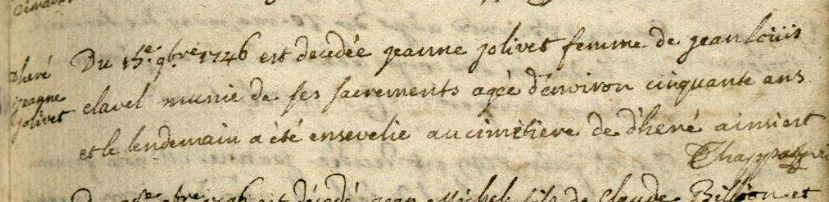 Dheré
jeanne
jolivet
Du 15e. 9bre 1746 est decedée jeanne jolivet femme de jean loüis
clavel munie de ses sacrements agée d'environ cinquante ans
et le lendemain a été ensevelie au cimetiere de d'heré ainsi est
Chappaz vi
1746 est décédé jean Michel fils de Claude Billion et